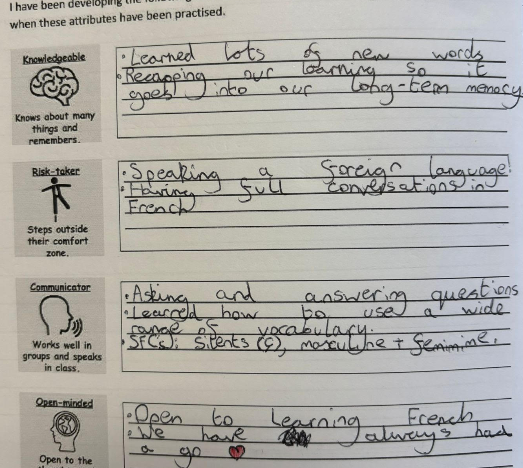 I have been developing the
when these attributes have been practised.
Knowledgeable
Knows about many
things and
remembers.
• Learned lots of new words
• Recapping our learning so it
goes into our long-term memory
Risk-taker
Steps outside
their comfort
zone.
• Speaking a foreign language!
• Having full conversations in
French
Communicator
Works well in
groups and speaks
in class.
• Asking and answering questions
• Learned how to use a wide
range of vocabulary.
• SFCs); silents (ç), masculine + feminine.
Open-minded
Open to the
• Open to learning French
• We have always had
a go ♥